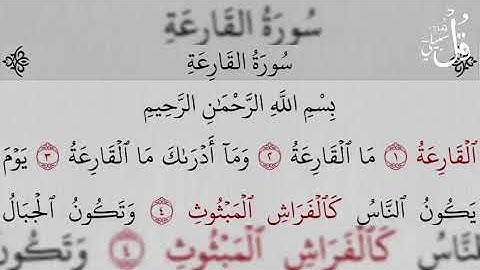 سُورَةُ القَارِعَةِ
سُورَةُ القَارِعَةِ
بِسْمِ اللَّهِ الرَّحْمَٰنِ الرَّحِيمِ
ٱلْقَارِعَةُ ١ مَا ٱلْقَارِعَةُ ٢ وَمَآ أَدْرَىٰكَ مَا ٱلْقَارِعَةُ ٣ يَوْمَ
يَكُونُ ٱلنَّاسُ كَٱلْفَرَاشِ ٱلْمَبْثُوثِ ٤ وَتَكُونُ ٱلْجِبَالُ
ٱلنَّاسُ كَٱلْفَرَاشِ ٱلْمَبْثُوثِ ٤ وَتَكُونُ